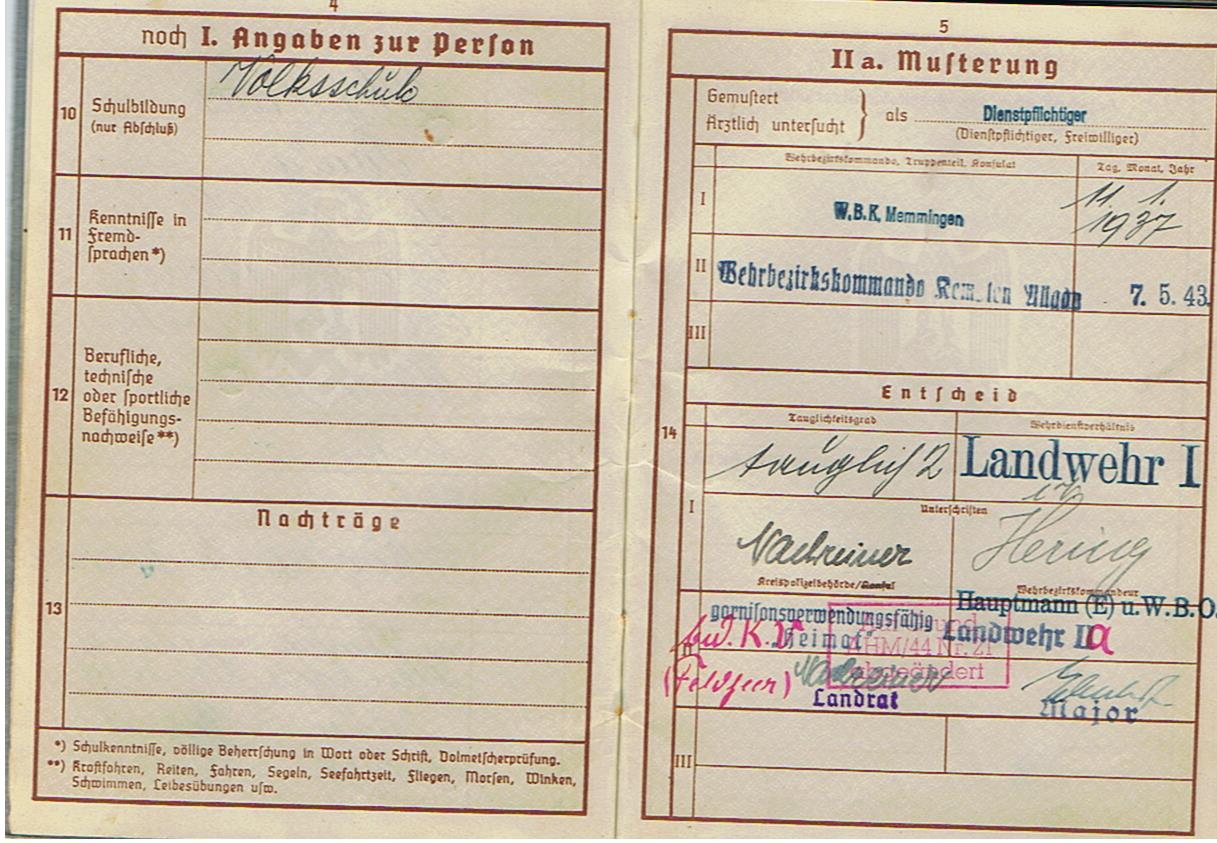 4
noch I. Angaben zur Person
10
Schulbildung
(nur Abschluß)
Volksschule
11
Kenntnisse in
Fremd-
sprachen *)
12
Berufliche,
technische
oder sportliche
Befähigungs-
nachweise **)
Nachträge
13
*) Schulkenntnisse, völlige Beherrschung in Wort oder Schrift, Dolmetscherprüfung.
**) Kraftfahren, Reiten, Fahren, Segeln, Seefahrtzeit, Fliegen, Morsen, Winken,
Schwimmen, Leibesübungen usw.
5
II a. Musterung
Gemustert
Ärztlich untersucht
als Dienstpflichtiger
(Dienstpflichtiger, Freiwilliger)
Wehrbezirkskommando, Truppenteil, Konsulat
Tag, Monat, Jahr
I
W.B.K. Memmingen
11. 1.
1937
II
Wehrbezirkskommando Kempten Allgäu
7. 5. 43
III
Entscheid
14
Tauglichkeitsgrad
Wehrdienstverhältnis
tauglich 2
Landwehr I
I
Unterschriften
Nachreiner
Hering
Kreispolizeibehörde/Konsul
Wehrbezirkskommandeur
Hauptmann (E) u. W.B.O.
garnisonsverwendungsfähig
Heimat"
Landwehr IIa
HM/44 Nr. 21
abgeändert
(Feldheer)
Nachreiner
Landrat
Major
III